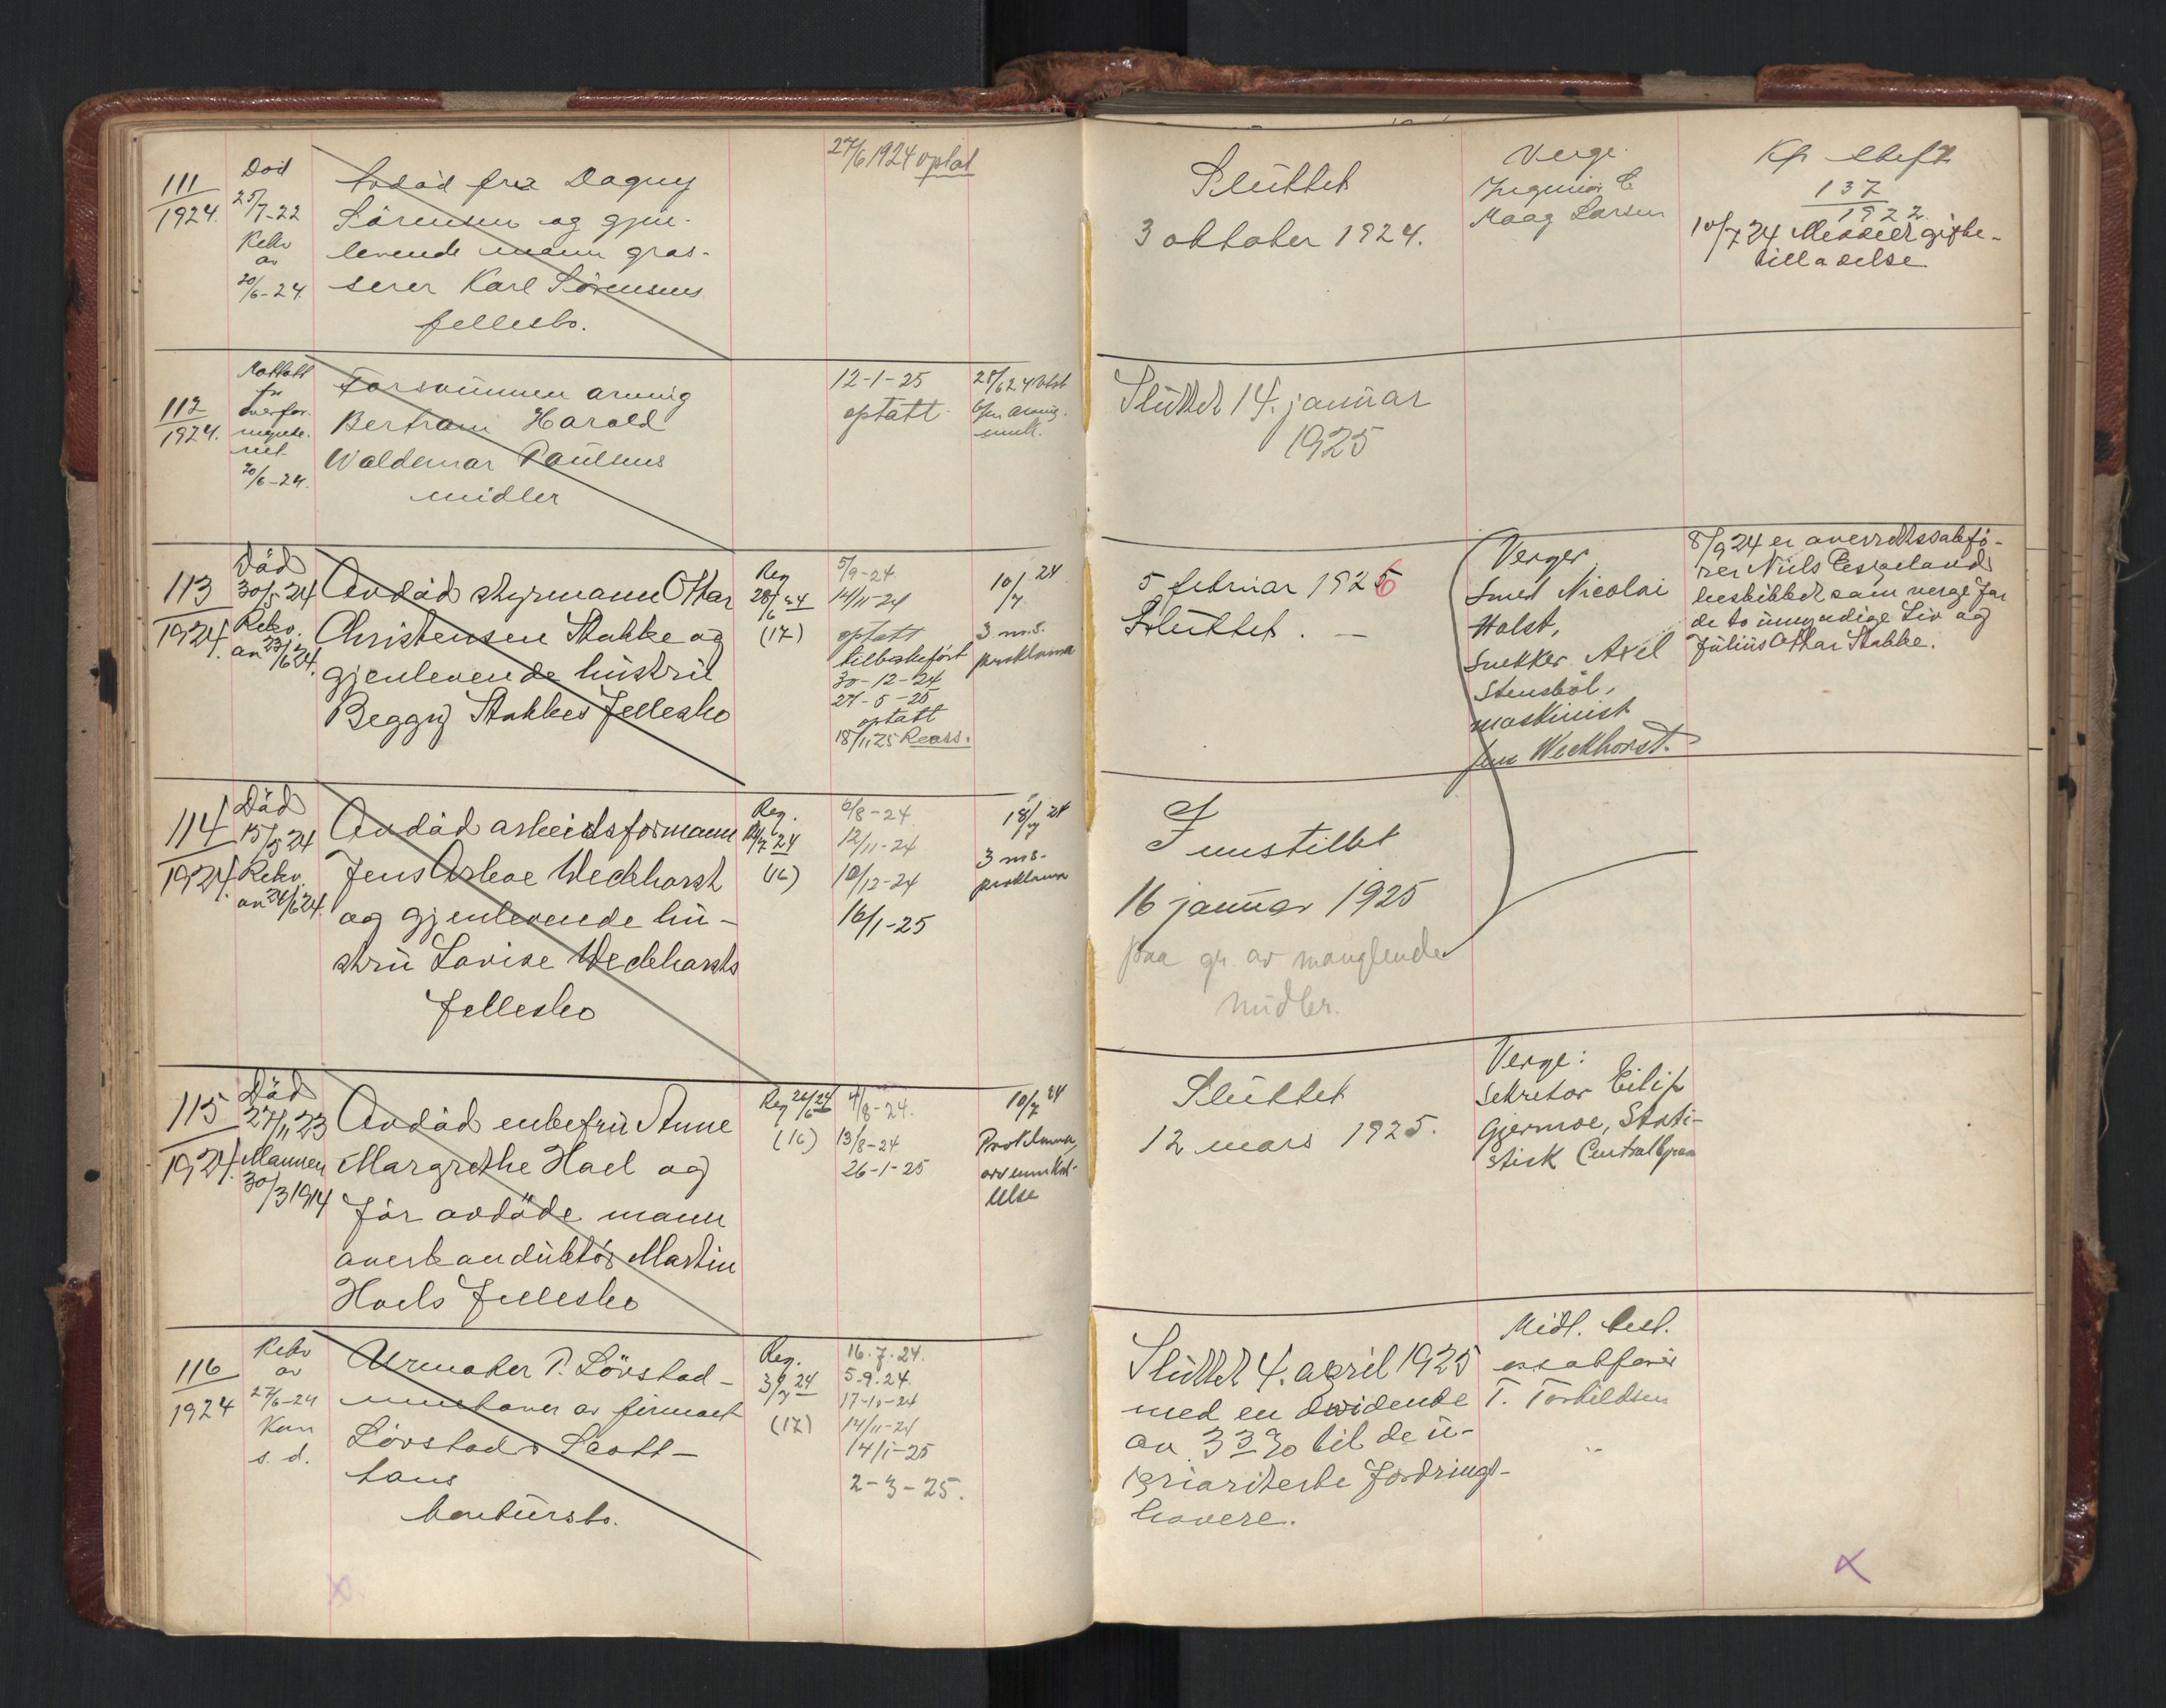 111
1924.
Død
25/7-22
Rekv
av
20/6-24.
Avdød frue Dagny
Sørensen og gjen-
levende mann gros-
serer Karl Sørensens
fellesbo.
27/6 1924 optat
Sluttet
3 oktober 1924.
Verge.
Ingeniør C.
Maag Larsen
137
1922.
10/7 24 Meddelt gifte-
tilladelse
112
1924.
Mottatt
fra
overfor-
mynde-
riet
20/6-24.
Forsvunnen arving
Bertram Harald
Waldemar Paulsens
midler
12-1-25
optatt
Sluttet 14. januar
1925
113
1924.
Død
30/5-24
Rekv.
av 23/6 24.
Avdød styrmann Ottar
Christensen Stakke og
gjenlevende hustru
Beggy Stakkes fellesbo
Reg
28/6 24
(17)
5/9-24
14/11-24
optatt
tilbakeført
30-12-24
27-5-25
optatt
18/11 25 Reass.
10/7 24
3 ms.
proklama
5 februar 1926
Sluttet. —
Verger
Smed Nicolai
Holst,
Snekker Axel
Stensbøl,
maskinist
Jens Weckhorst.
8/9 24 er overrettssakfø-
rer Niels Eskeland
beskikket som verge for
de to umyndige Liv og
Julius Ottar Stakke.
114
1924.
Død
15/5 24
Rekv.
av 24/6 24.
Avdød arbeidsformann
Jens Asløe Weckhorst
og gjenlevende hu-
stru Lovise Weckhorsts
fellesbo
Reg.
14/7 24
(16)
6/8-24
12/11-24
10/12-24
16/1-25
18/7 24
3 ms.
proklama
Innstillet
16 januar 1925
paa gr. av manglende
midler.
115
1924.
Død
27/11 23
Mannen
30/3 1914
Avdød enkefru Anne
Margrethe Hoel og
før avdøde mann
overkonduktør Martin
Hoels fellesbo
Reg 26/6 24
(16)
4/8-24.
13/8-24
26-1-25
10/7 24
Proklama,
arveinnkal-
lelse
Sluttet
12 mars 1925.
Verge:
Sekretær Eilif
Gjermoe, Stati-
stisk Centralbyraa
116
1924
Rekv
av
27/6-24
Kun
s. d.
Urmaker P. Lövstad-
innehaver av firmaet
Lövstad & Scott-
hans
konkursbo.
Reg.
3/7 24
(17)
16.7.24.
5.9.24.
17-10-24
14/11-24
14/1-25
2-3-25.
Sluttet 4. april 1925
med en dividende
av 3 3 % til de u-
prioriterte fordrings-
havere.
Midl. best.
o.r.sakfører
T. Torkildsen